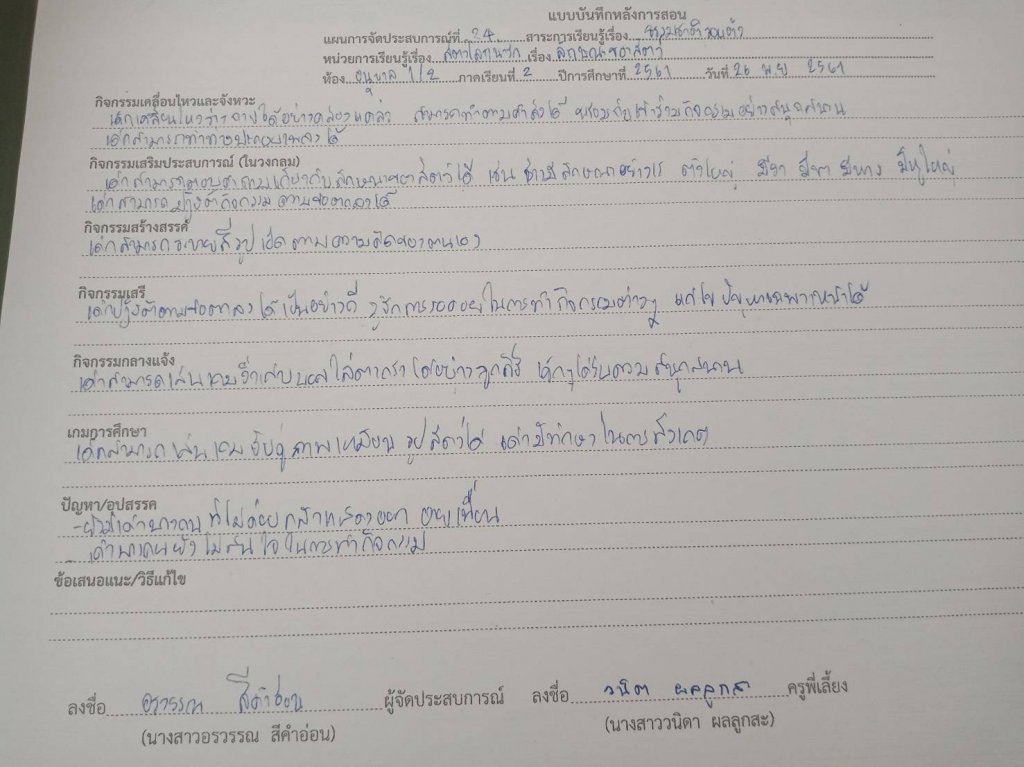 แบบบันทึกหลังการสอน
แผนการจัดประสบการณ์ที่ 24 สาระการเรียนรู้เรื่อง ธรรมชาติรอบตัว
หน่วยการเรียนรู้เรื่อง สัตว์โลกน่ารัก เรื่อง ลักษณะของสัตว์
ห้อง อนุบาล 1/2 ภาคเรียนที่ 2 ปีการศึกษาที่ 2561 วันที่ 26 พ.ย 2561
กิจกรรมเคลื่อนไหวและจังหวะ
เด็กเคลื่อนไหวร่างกายได้อย่างคล่องแคล่ว สามารถทำตามคำสั่งได้ พร้อมกับเข้าร่วมกิจกรรมอย่างสนุกสนาน
เด็กสามารถทำท่าประกอบเพลงได้
กิจกรรมเสริมประสบการณ์ (ในวงกลม)
เด็กสามารถตอบคำถามเกี่ยวกับลักษณะของสัตว์ได้ เช่น ช้างมีลักษณะอย่างไร ตัวใหญ่ มีงา มีขา มีหาง มีหูใหญ่
เด็กสามารถปฏิบัติกิจกรรมตามข้อตกลงได้
กิจกรรมสร้างสรรค์
เด็กสามารถระบายสีรูปเป็ดตามความคิดของตนเอง
กิจกรรมเสรี
เด็กปฏิบัติตามข้อตกลงได้เป็นอย่างดี รู้จักการรอคอยในการทำกิจกรรมต่างๆ แก้ไขปัญหาเฉพาะหน้าได้
กิจกรรมกลางแจ้ง
เด็กสามารถเล่นเกมวิ่งเก็บบอลใส่ตะกร้าได้อย่างถูกวิธี เด็กๆได้รับความสนุกสนาน
เกมการศึกษา
เด็กสามารถเล่นเกมจับคู่ภาพเหมือนรูปสัตว์ได้ เด็กมีทักษะในการสังเกต
ปัญหา/อุปสรรค
- ยังมีเด็กบางคนที่ไม่ค่อยกล้าแสดงออก อายเพื่อน
- เด็กบางคนยังไม่สนใจในการทำกิจกรรม
ข้อเสนอแนะ/วิธีแก้ไข
ลงชื่อ อรวรรณ สีคำอ่อน ผู้จัดประสบการณ์ ลงชื่อ วนิดา ผลลูกสะ ครูพี่เลี้ยง
(นางสาวอรวรรณ สีคำอ่อน) (นางสาววนิดา ผลลูกสะ)